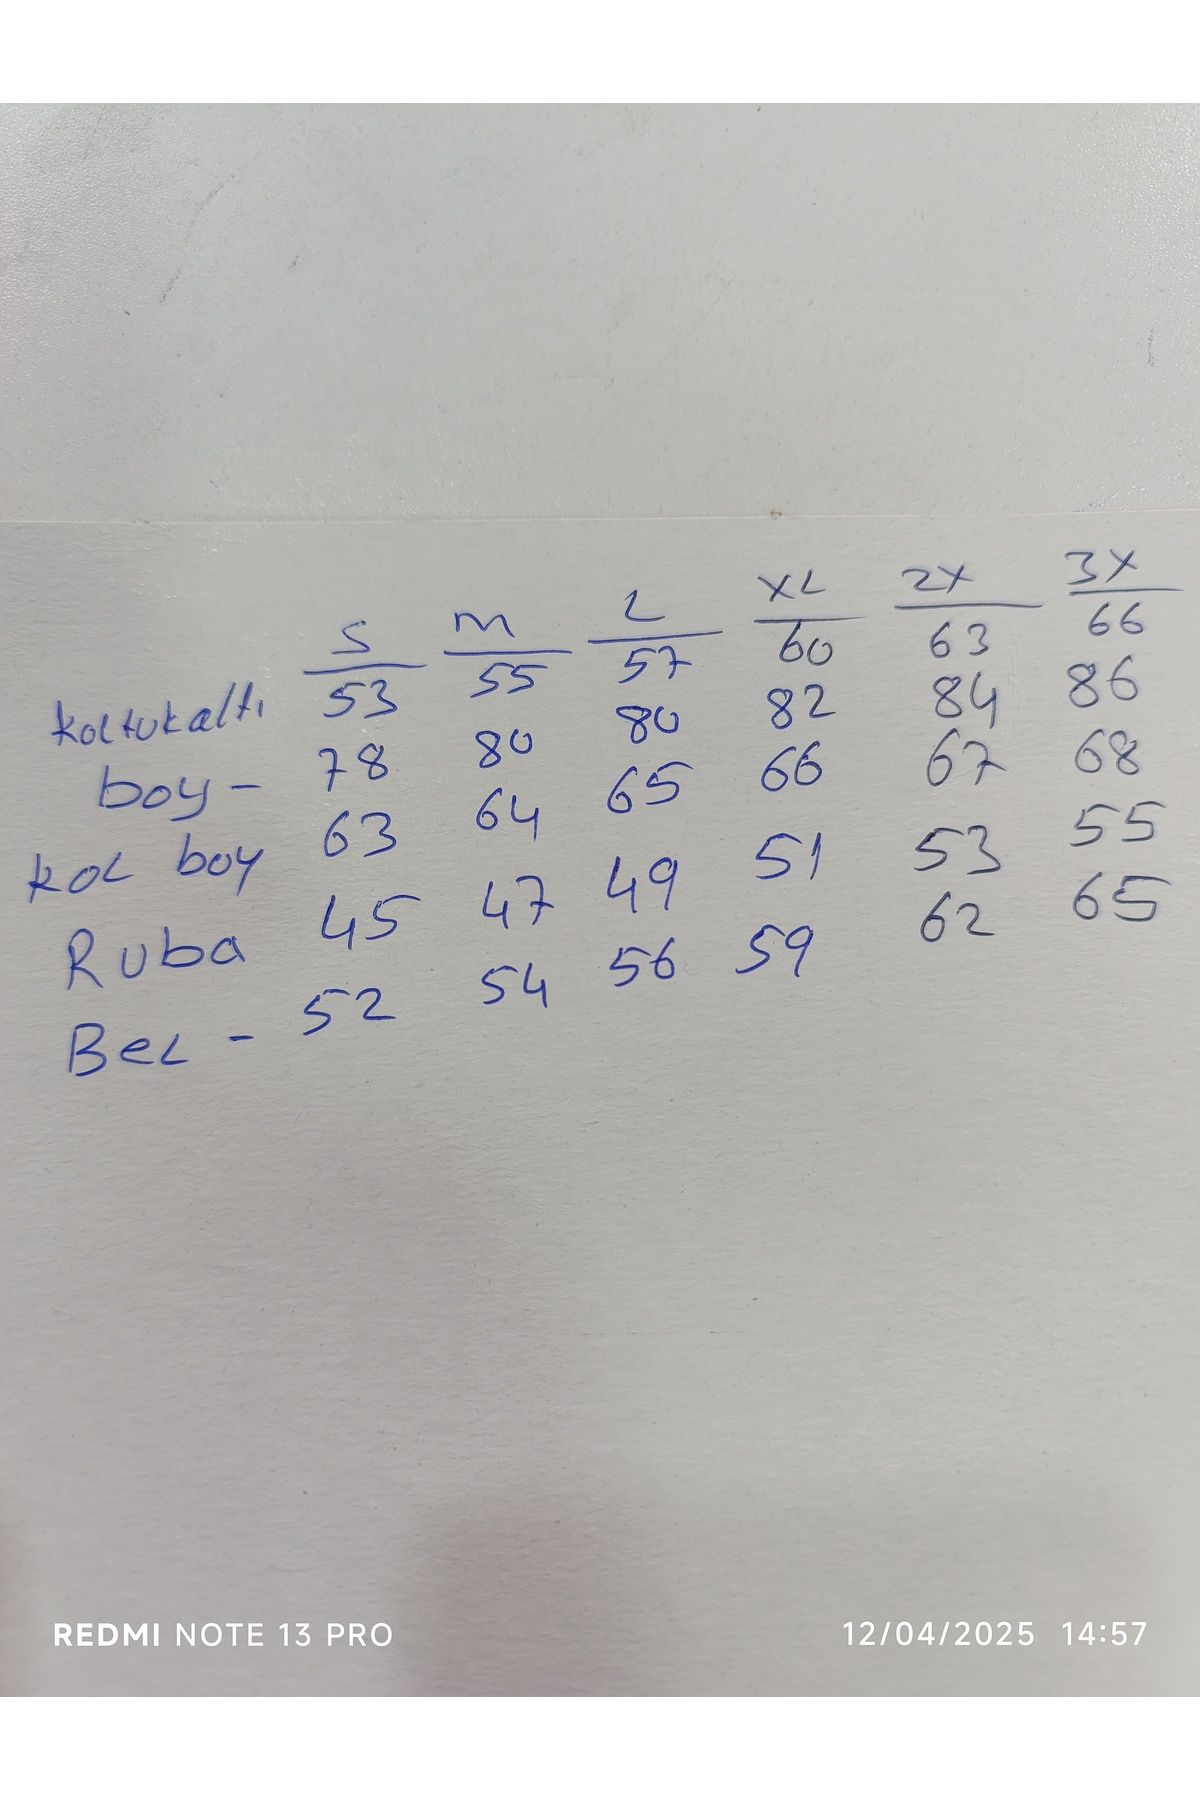 S M L XL 2X 3X
koltukaltı 53 55 57 60 63 66
boy - 78 80 80 82 84 86
kol boy 63 64 65 66 67 68
Ruba 45 47 49 51 53 55
Bel - 52 54 56 59 62 65
REDMI NOTE 13 PRO 12/04/2025 14:57